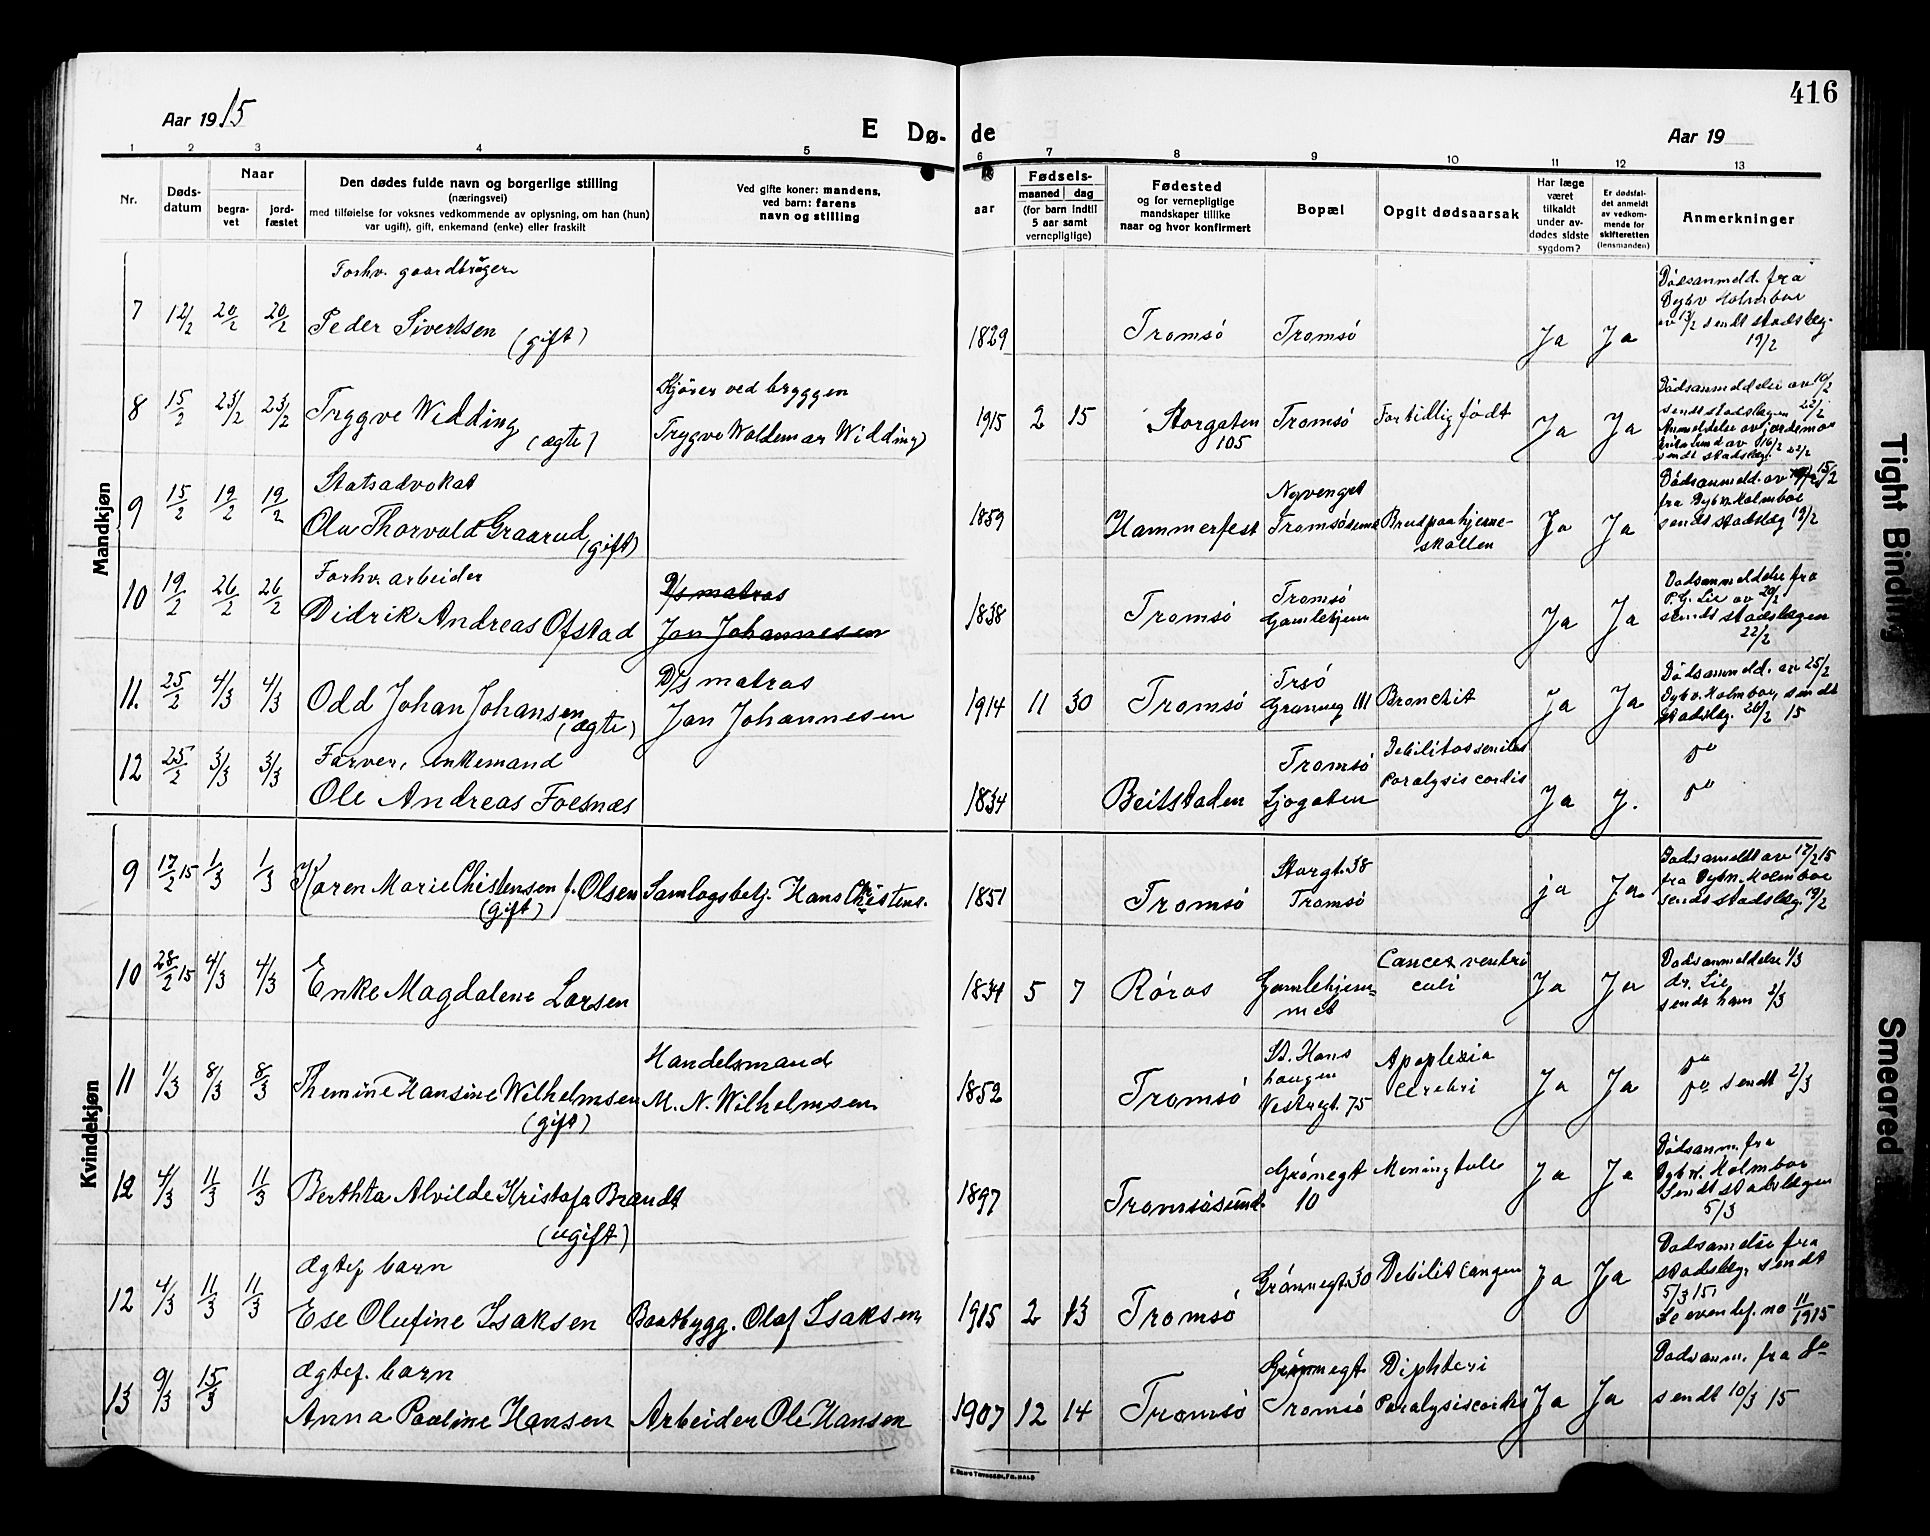 416
Aar 1915
E Dø-de
Aar 19
1 2 3 4 5 6 7 8 9 10 11 12 13
Nr.
Døds-
datum
Naar
begra-
vet
jord-
fæstet
Den dødes fulde navn og borgerlige stilling
(næringsvei)
med tilføielse for voksnes vedkommende av oplysning, om han (hun)
var ugift), gift, enkemand (enke) eller fraskilt
Ved gifte koner: mandens,
ved barn: farens
navn og stilling
aar
Fødsels-
maaned dag
(for barn indtil
5 aar samt
vernepligtige)
Fødested
og for vernepligtige
mandskaper tillike
naar og hvor konfirmert
Bopæl
Opgit dødsaarsak
Har læge
været
tilkaldt
under av-
dødes sidste
sygdom?
Er dødsfal-
det anmeldt
av vedkom-
mende for
skifteretten
(lensmanden)
Anmerkninger
Mandkjøn
7 12/2 20/2 20/2
Forhv. gaardbruger
Peder Sivertsen (gift)
1829 Tromsø Tromsø Ja Ja
Dødsanmeld. fra
Dybv Holmboe
av 13/2 sendt stadslæg.
19/2
8 15/2 23/2 23/2
Tryggve Widding (ægte)
Kjører ved bryggen
Trygve Waldemar Widding
1915 2 15 Storgaten
105
Tromsø For tidlig født Ja Ja
Dødsanmeldelse av 19/2
sendt stadslægen 22/2
Anmeldelse av jordemor
sendt stadslæg. 22/2
9 15/2 19/2 19/2
Statsadvokat
Ole Thorvald Graarud (gift)
1859 Hammerfest
Nyvenget
Tromsøsund
Brud paa hjerne-
skallen
Ja Ja
Dødsanmeld. av 15/2
fra Dybv. Holmboe
sendt stadslæg 19/2
10 19/2 26/2 26/2
Forhv. arbeider
Didrik Andreas Ofstad
D/s matros
Jan Johannesen
1838 Tromsø
Tromsø
Gamlehjem
Ja Ja
Dødsanmeldelse fra
P. G. Lie av 20/2
sendt stadslægen
22/2
11. 25/2 4/3 4/3
Odd Johan Johansen (ægte)
D/s matros
Jan Johannesen
1914 11 30 Tromsø
Trsø
Grønneg 111
Bronchit Ja Ja
Dødsanmeld. av 25/2
Dybv. Holmboe, sendt
Stadslæg. 26/2 15
12 25/2 3/3 3/3
Farver, enkemand
Ole Andreas Foesnæs
1834 Beitstaden
Tromsø
Sjøgaten
Debilitas senilis
Paralysis cordis
Ja J.
do
do
Kvindekjøn
9 17/2 15 1/3 1/3
Karen Marie Christensen f. Olsen
(gift)
Samlagsbetj. Hans Christens.
1851 Tromsø
Storgt. 38
Tromsø
ja Ja
Dødsanmeldt av 17/2 15
fra Dybv. Holmboe
sendt stadslæg. 19/2
10 28/2 15 4/3 4/3
Enke Magdalene Larsen
1834 5 7 Røros
Gamlehjem-
met
Cancer ventri
culi
Ja Ja
Dødsanmeldelse 1/3
dr. Lie
sendt ham 2/3
11 1/3 8/3 8/3
Themine Hansine Wilhelmsen
(gift)
Handelsmand
M. N. Wilhelmsen
1852 Tromsø
St. Hans
haugen
Vestregt. 75
Apoplexia
Cerebri
Ja Ja
do
do sendt 2/3
12 4/3 11/3 11/3
Berthta Alvilde Kristofa Brandt
(ugift)
1897 Tromsøsund.
Grønegt
10
Ja Ja
Dødsanm. fra
Dybv. Holmboe
Sendt stadslægen
5/3
12 4/3 11/3 11/3
Ægtef barn
Ese Olufine Isaksen
Baatbygg. Olaf Isaksen
1915 2 13 Tromsø
Grønnegt. 30
Debilit. congen
Ja Ja
Dødsanmelse fra
stadslæg, sendt
5/3 15,
Se even lef. no 11/1915
13 9/3 15/3
Ægtef. barn
Anna Pauline Hansen
Arbeider Ole Hansen
1907 12 14 Tromsø
Grønnegt.
Tromsø
Diphteri
Paralysis cordis
Ja Ja
Dødsanm. fra do
sendt 10/3 15
Tight Binding
Smeared